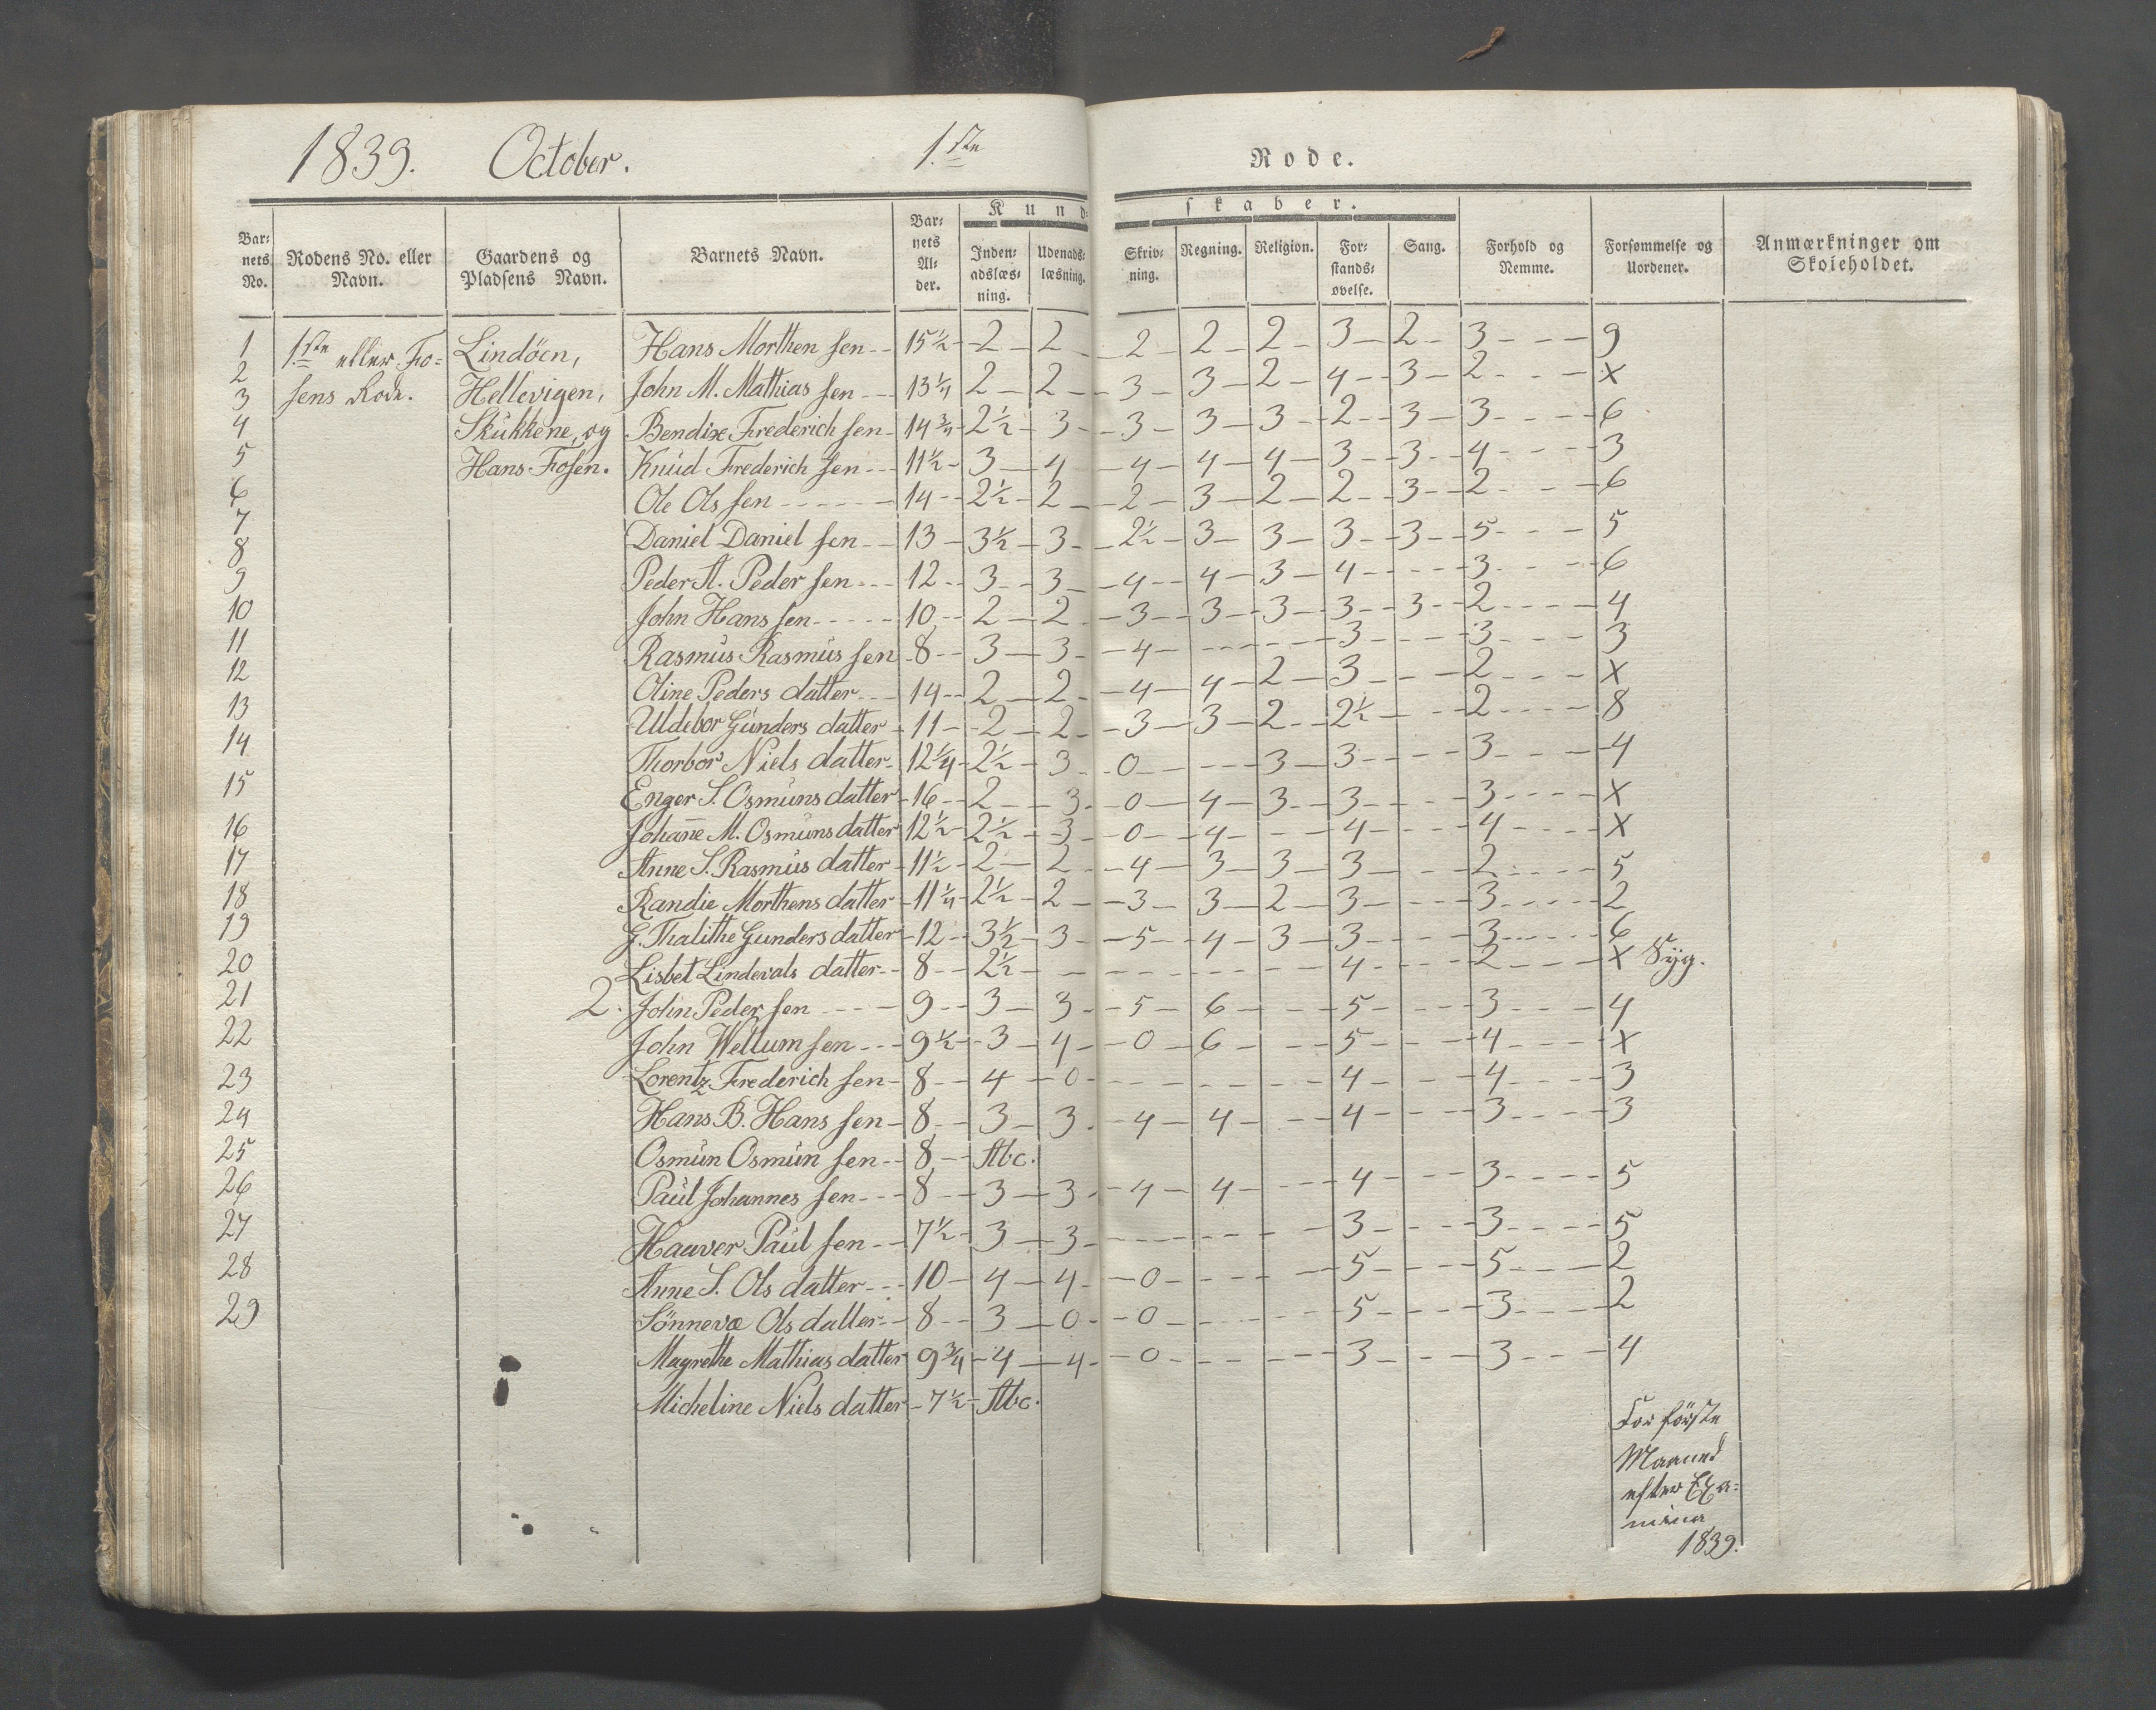 1839. October. 1.ste Rode.
Bar=
nets
No.
Rodens No. eller
Navn.
Gaardens og
Pladsens Navn.
Barnets Navn.
Bar=
nets
Al=
der.
Kund=
skaber.
Inden=
adslæs=
ning.
Udenads=
læsning.
Skriv=
ning.
Regning.
Religion.
For=
stands=
øvelse.
Sang.
Forhold og
Nemme.
Forsømmelse og
Uordener.
Anmærkninger om
Skoleholdet.
1 2 3 4 5 6 7 8 9 10 11 12 13 14 15 16 17 18 19 20 21 22 23 24 25 26 27 28 29
1ste eller Fo=
sens Rode.
Lindöen,
Hellevigen,
Skükkene, og
Hans Fosen.
Hans Morthen sen 15½ 2 2 2 2 2 3 2 3 9
John M. Mathias sen 13¼ 2 2 3 3 2 4 3 2 X
Bendix Frederich sen 14¾ 2½ 3 3 3 3 2 3 3 6
Knüd Frederich sen 11½ 3 4 4 4 4 3 3 4 3
Ole Ols sen 14 2½ 2 2 3 2 2 3 2 6
Daniel Daniel sen 13 3½ 3 2½ 3 3 3 3 5 5
Peder A. Peder sen 12 3 3 4 4 3 4 3 6
John Hans sen 10 2 2 3 3 3 3 3 2 4
Rasmüs Rasmüs sen 8 3 3 4 3 3 3
Oline Peders datter 14 2 2 4 4 2 3 2 X
Uldebor Günders datter 11 2 2 3 3 2 2½ 2 8
Thorbor Niels datter 12¼ 2½ 3 0 3 3 3 4
Enger S. Osmüns datter 16 2 3 0 4 3 3 3 X
Johan̄e M. Osmüns datter 12½ 2½ 3 0 4 4 4 X
Anne S. Rasmüs datter 11½ 2 2 4 3 3 3 2 5
Randie Morthens datter 11¼ 2½ 2 3 3 2 3 3 2
G. Thalithe Gunders datter 12 3½ 3 5 4 3 3 3 6
Lisbet Lindevals datter 8 2½ 4 2 X Syg.
2. John Peder sen 9 3 3 5 6 5 3 4
John Wellum sen 9½ 3 4 0 6 5 4 X
Lorentz Frederich sen 8 4 0 4 4 3
Hans B. Hans sen 8 3 3 4 4 4 3 3
Osmün Osmün sen 8 Abc.
Paül Johannes sen 8 3 3 4 4 4 3 5
Haaver Paül sen 7½ 3 3 3 3 5
Anne S. Ols datter 10 4 4 0 5 5 2
Sönneva Ols datter 8 3 0 0 5 3 2
Magrethe Mathias datter 9¾ 4 4 0 3 3 4
Micheline Niels datter 7½ Abc.
For förste
Maaned
efter Exa=
mina
1839.